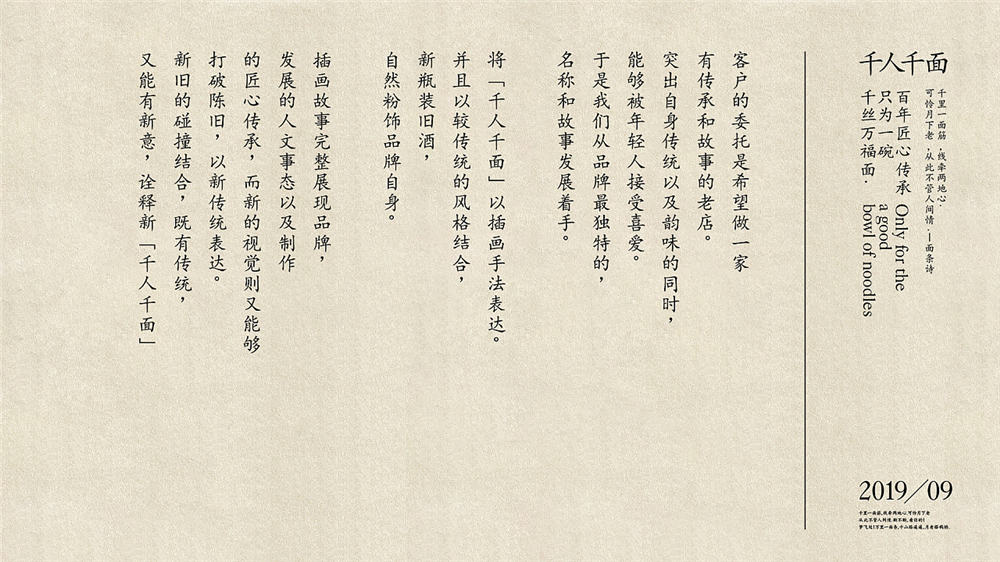 千人千面
千里一面筋,线牵两地心.
可怜月下老,从此不管人间情.—面条诗
百年匠心传承
只为一碗
千丝万福面.
Only for the
a good
bowl of noodles
客户的委托是希望做一家
有传承和故事的老店。
突出自身传统以及韵味的同时,
能够被年轻人接受喜爱。
于是我们从品牌最独特的,
名称和故事发展着手。
将「千人千面」以插画手法表达。
并且以较传统的风格结合,
新瓶装旧酒,
自然粉饰品牌自身。
插画故事完整展现品牌,
发展的人文事态以及制作
的匠心传承,而新的视觉则又能够
打破陈旧,以新传统表达。
新旧的碰撞结合,既有传统,
又能有新意,诠释新「千人千面」
2019/09
千里一面筋,线牵两地心,可怜月下老
从此不管人间情.